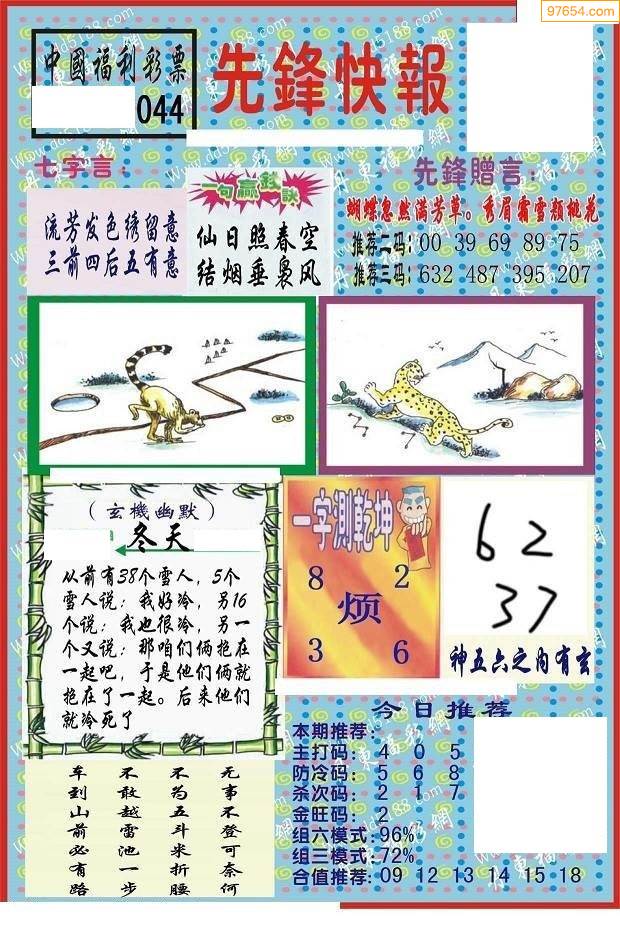 97654.com
中國福利彩票
044
先鋒快報
七字言：
流芳发色绣留意
三前四后五有意
一句贏錢訣
仙日照春空
结烟垂袅风
先鋒贈言：
蝴蝶忽然满芳草。秀眉霜雪颜桃花
推荐二码：00 39 69 89 75
推荐三码：632 487 395 207
（玄機幽默）
冬天
从前有38个雪人，5个
雪人说：我好冷，另16
个说：我也很冷，另一
个又说：那咱们俩抱在
一起吧，于是他们俩就
抱在了一起。后来他们
就冷死了
一字測乾坤
8 2
烦
3 6
62
37
神五六之内有玄
车到山前必有路
不敢越雷池一步
不为五斗米折腰
无事不登可奈何
今日推荐
本期推荐：
主打码：4 0 5
防冷码：5 6 8
杀次码：2 1 7
金旺码：2
组六模式：96%
组三模式：72%
合值推荐：09 12 13 14 15 18